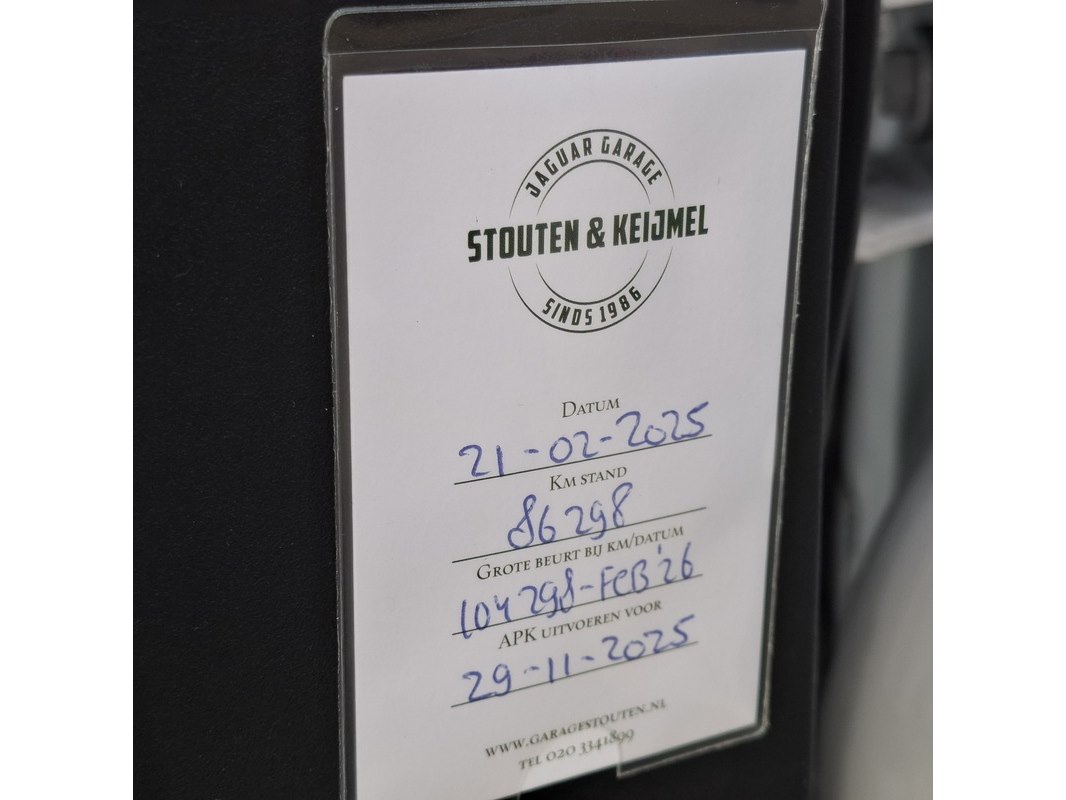 JAGUAR GARAGE
STOUTEN & KEIJMEL
SINDS 1986
DATUM
21-02-2025
KM STAND
86298
GROTE BEURT BIJ KM/DATUM
104298-FEB'26
APK UITVOEREN VOOR
29-11-2025
WWW.GARAGESTOUTEN.NL
TEL 020 3341899